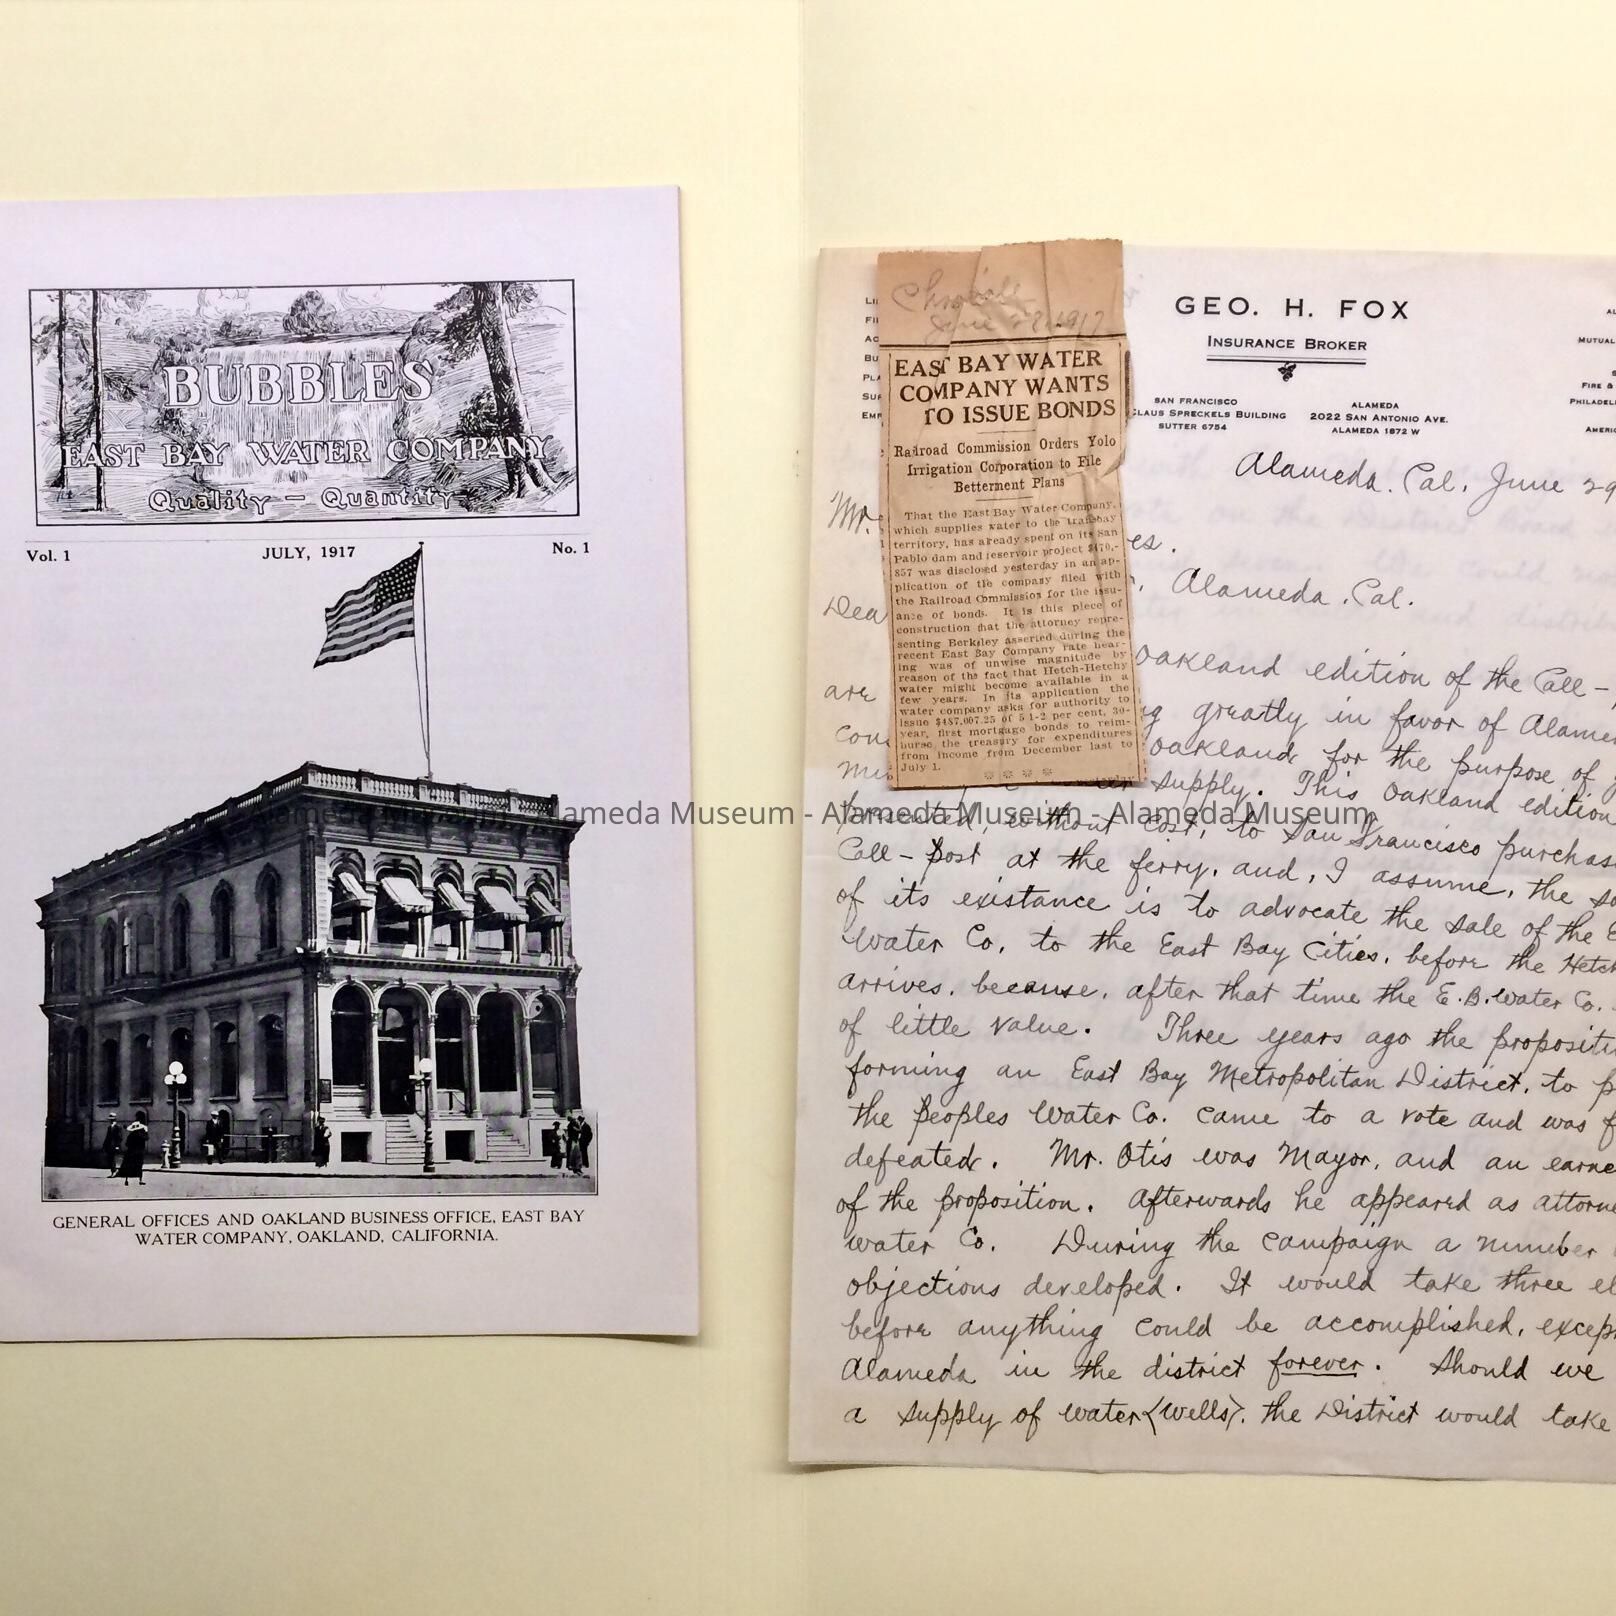 BUBBLES
EAST BAY WATER COMPANY
Quality - Quantity
Vol. 1 JULY, 1917 No. 1
GENERAL OFFICES AND OAKLAND BUSINESS OFFICE, EAST BAY
WATER COMPANY, OAKLAND, CALIFORNIA.
Chronicle
June 28 1917
EAST BAY WATER
COMPANY WANTS
TO ISSUE BONDS
Railroad Commission Orders Yolo
Irrigation Corporation to File
Betterment Plans
That the East Bay Water Company,
which supplies water to the transbay
territory, has already spent on its San
Pablo dam and reservoir project $470,-
857 was disclosed yesterday in an ap-
plication of the company filed with
the Railroad Commission for the issu-
ance of bonds. It is this piece of
construction that the attorney repre-
senting Berkeley asserted during the
recent East Bay Company rate hear-
ing was of unwise magnitude by
reason of the fact that Hetch-Hetchy
water might become available in a
few years. In its application the
water company asks for authority to
issue $487,007.25 of 5 1-2 per cent, 30-
year, first mortgage bonds to reim-
burse the treasury for expenditures
from income from December last to
July 1.
GEO. H. FOX
INSURANCE BROKER
SAN FRANCISCO
CLAUS SPRECKELS BUILDING
SUTTER 6754
ALAMEDA
2022 SAN ANTONIO AVE.
ALAMEDA 1872 W
MUTUAL
FIRE &
Alameda. Cal. June 29
Mr.
es.
Alameda. Cal.
Dea
Oakland edition of the Call-
are greatly in favor of Alame
Oakland for the purpose of
supply. This Oakland edition
presented, without cost, to San Francisco purchas
Call-post at the ferry, and, I assume, the so
of its existance is to advocate the sale of the E
Water Co. to the East Bay Cities, before the Hetch
arrives. because, after that time the E.B. Water Co.
of little value. Three years ago the propositi
forming an East Bay Metropolitan District, to p
the Peoples Water Co. came to a vote and was f
defeated. Mr. Otis was Mayor, and an earne
of the proposition. Afterwards he appeared as attorne
water Co. During the campaign a number
objections developed. It would take three el
before anything could be accomplished, excep
Alameda in the district forever. Should we
a supply of water (wells), the District would take
Alameda Museum - Alameda Museum - Alameda Museum - Alameda Museum